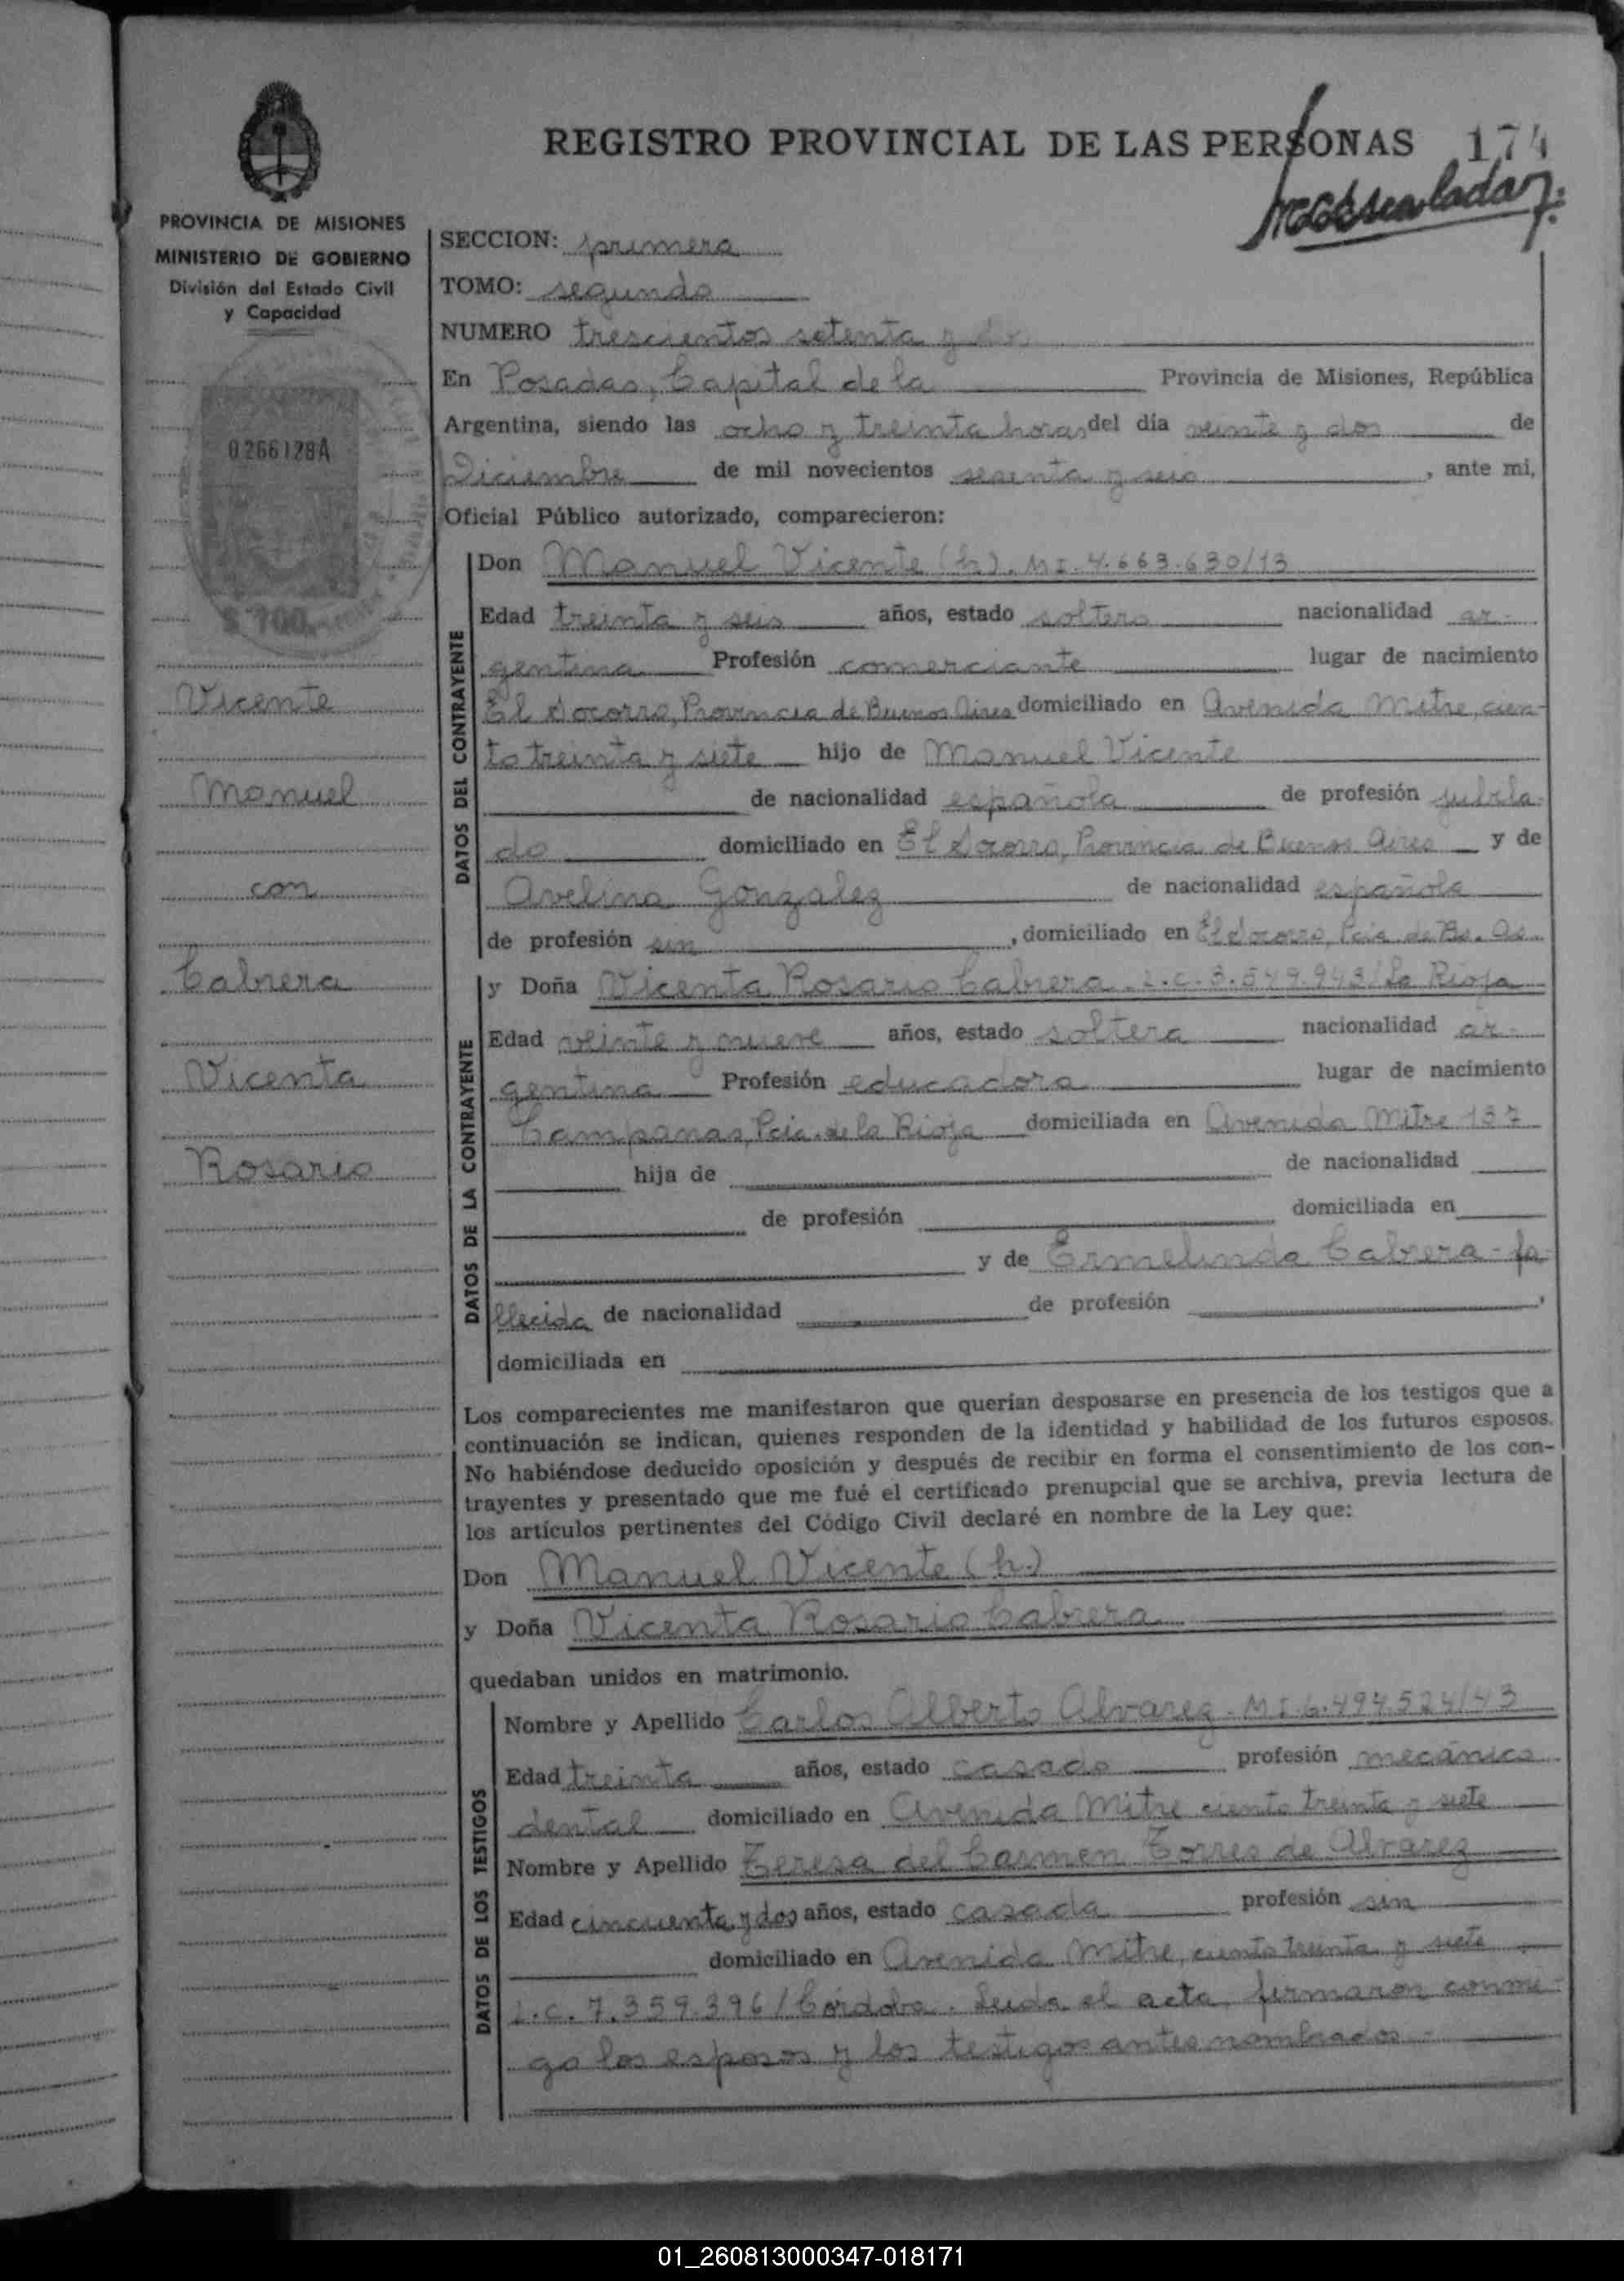 REGISTRO PROVINCIAL DE LAS PERSONAS 174
PROVINCIA DE MISIONES
MINISTERIO DE GOBIERNO
División del Estado Civil
y Capacidad
0266128A
$ 100.
Vicente
Manuel
con
Cabrera
Vicenta
Rosario
SECCION: primera
TOMO: segundo
NUMERO trescientos setenta y dos
En Posadas, Capital de la Provincia de Misiones, República
Argentina, siendo las ocho y treinta horas del día veinte y dos de
Diciembre de mil novecientos sesenta y seis, ante mi,
Oficial Público autorizado, comparecieron:
DATOS DEL CONTRAYENTE
Don Manuel Vicente (h). M I. 4.663.630/13
Edad treinta y seis años, estado soltero nacionalidad ar-
gentina Profesión comerciante lugar de nacimiento
El Socorro, Provincia de Buenos Aires domiciliado en Avenida Mitre, cien-
to treinta y siete hijo de Manuel Vicente
de nacionalidad española de profesión jubila-
do domiciliado en El Socorro, Provincia de Buenos Aires y de
Avelina Gonzalez de nacionalidad española
de profesión sin, domiciliado en El Socorro, Pcia. de Bs. As.
DATOS DE LA CONTRAYENTE
y Doña Vicenta Rosario Cabrera. L.C. 3.549.943/La Rioja
Edad veinte y nueve años, estado soltera nacionalidad ar-
gentina Profesión educadora lugar de nacimiento
Campanas, Pcia. de la Rioja domiciliada en Avenida Mitre 137
hija de de nacionalidad
de profesión domiciliada en
y de Ermelinda Cabrera - fa-
llecida de nacionalidad de profesión ,
domiciliada en
Los comparecientes me manifestaron que querían desposarse en presencia de los testigos que a
continuación se indican, quienes responden de la identidad y habilidad de los futuros esposos.
No habiéndose deducido oposición y después de recibir en forma el consentimiento de los con-
trayentes y presentado que me fué el certificado prenupcial que se archiva, previa lectura de
los artículos pertinentes del Código Civil declaré en nombre de la Ley que:
Don Manuel Vicente (h)
y Doña Vicenta Rosario Cabrera
quedaban unidos en matrimonio.
DATOS DE LOS TESTIGOS
Nombre y Apellido Carlos Alberto Alvarez. M I. 6.494.524/43
Edad treinta años, estado casado profesión mecánico
dental domiciliado en Avenida Mitre ciento treinta y siete
Nombre y Apellido Teresa del Carmen Torres de Alvarez
Edad cincuenta y dos años, estado casada profesión sin
domiciliado en Avenida Mitre, ciento treinta y siete
L.C. 7.359.396/Córdoba. Leida el acta, firmaron conmi-
go los esposos y los testigos antes nombrados.-
01_260813000347-018171